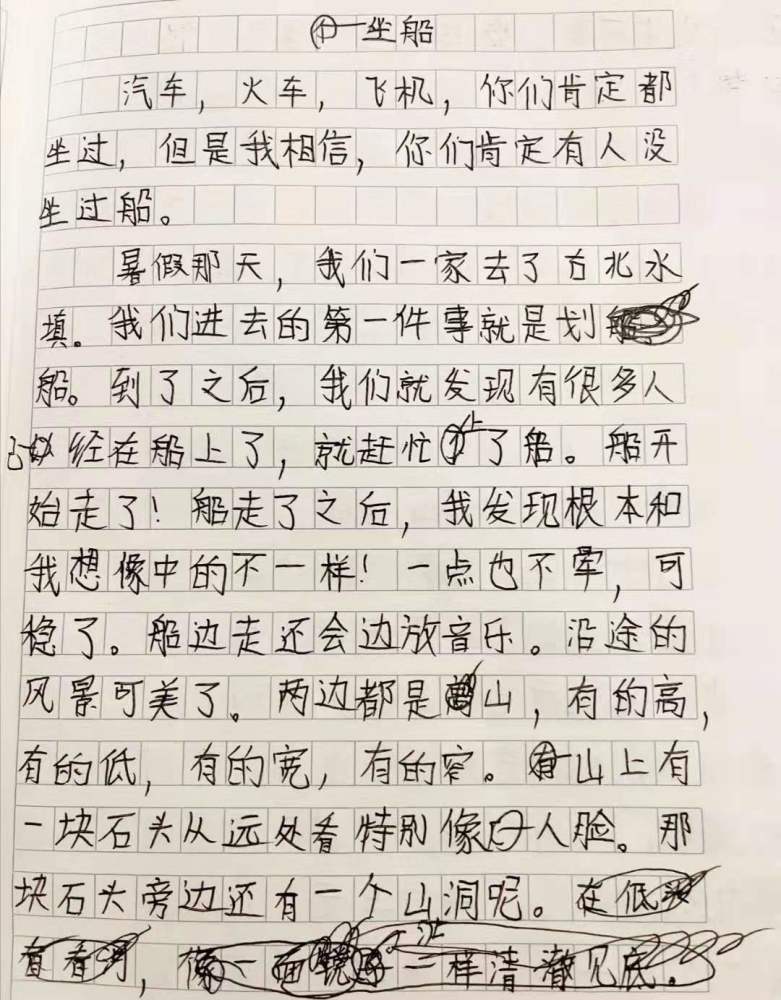 坐船
汽车，火车，飞机，你们肯定都
坐过，但是我相信，你们肯定有人没
坐过船。
暑假那天，我们一家去了古北水
填。我们进去的第一件事就是划
船。到了之后，我们就发现有很多人
已经在船上了，就赶忙上了船。船开
始走了！船走了之后，我发现根本和
我想像中的不一样！一点也不晕，可
稳了。船边走还会边放音乐。沿途的
风景可美了。两边都是山，有的高，
有的低，有的宽，有的窄。山上有
一块石头从远处看特别像人脸。那
块石头旁边还有一个山洞呢。在低
看河，像一面镜子一样清澈见底。